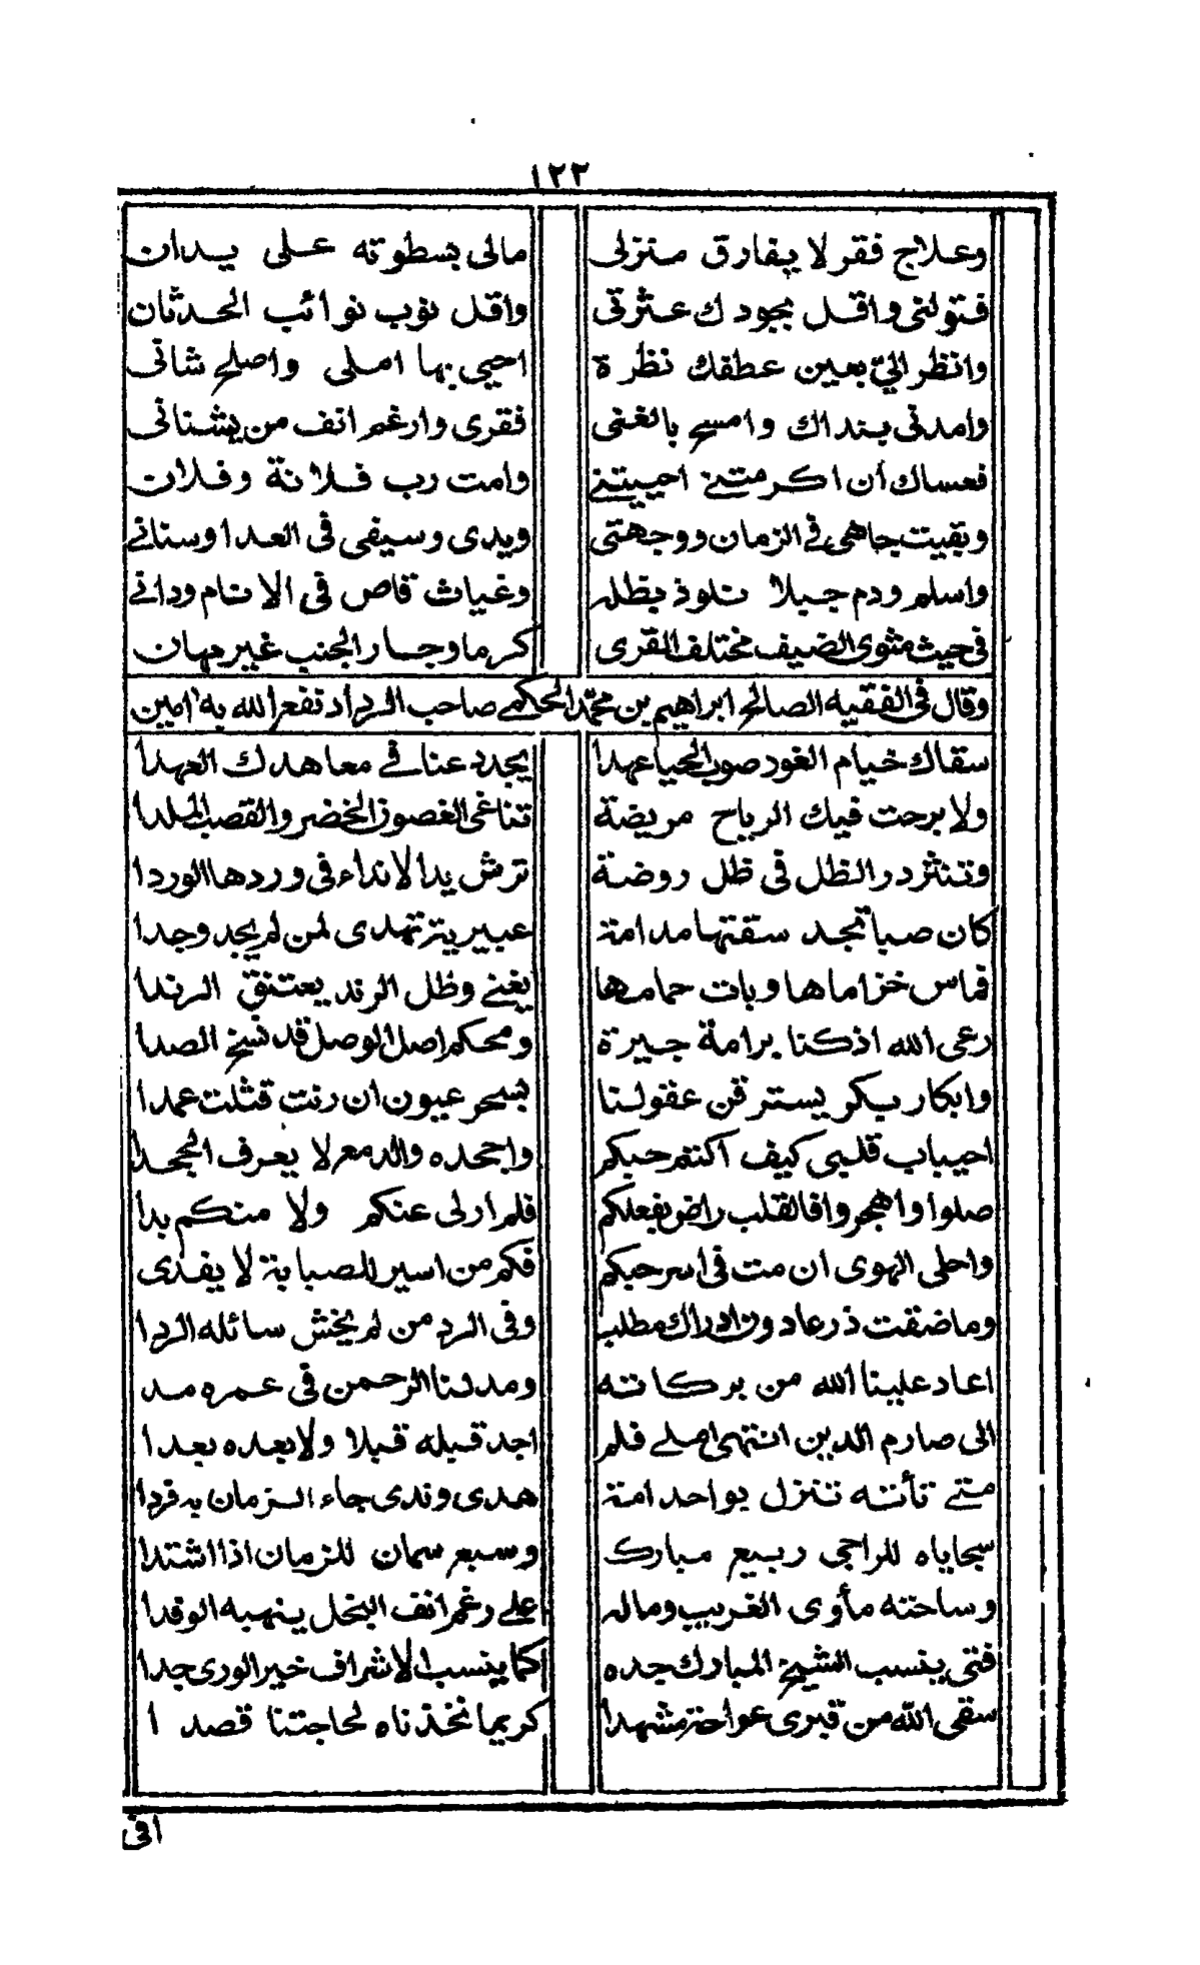 ١٢٢
وعلاج فقر لا يفارق منزلى مالى بسطوته على يدان
فتولنى واقل بجودك عثرتى واقل نوب نوائب الحدثان
وانظر الىّ بعين عطفك نظرة احيى بها املى واصلح شانى
وامدنى بنداك وامسح بالغنى فقرى وارغم انف من يشنانى
فعساك ان اكرمتنى احييتنى وامت رب فلانة وفلان
وبقيت جاهى فى الزمان ووجهتى ويدى وسيفى فى العدا وسنانى
واسلم ودم جبلا نلوذ بظله وغياث قاص فى الانام ودانى
فى حيث مثوى الضيف مختلف القرى كرما وجار الجنب غير مهان
وقال فى الفقيه الصالح ابراهيم بن محمد الحكمى صاحب الرد اد نفع الله به امين
سقاك خيام الغور صوب الحيا عهدا يجدد عنا فى معاهدك العهدا
ولا برحت فيك الرياح مريضة تناغى الغصون الخضر والقصب الملدا
وتنثر در الظل فى ظل روضة ترش يد الانداء فى وردها الوردا
كان صبا نجد سقتها مدامة عبيرية تهدى لمن لم يجد وجدا
فماس خزاماها وبات حمامها يغنى وظل الرند يعتنق الرندا
رعى الله اذ كنا برامة جيرة ومحكم اصل الوصل قد نسخ الصدا
وابكار بكر يسترقن عقولنا بسحر عيون ان رنت قتلت عمدا
احباب قلبى كيف اكتم حبكم واجحده والدمع لا يعرف الجحدا
صلوا واهجروا فالقلب راض بفعلكم فلم ار لى عنكم ولا منكم بدا
واحلى الهوى ان مت فى اسر حبكم فكم من اسير للصبابة لا يفدى
وما ضقت ذرعا دون ادراك مطلب وفى الرد من لم يخش سائله الردا
اعاد علينا الله من بركاته ومد لنا الرحمن فى عمره مد
الى صارم الدين انتهى املى فلم اجد قبله قبلا ولا بعده بعدا
متى تأته تنزل بواحد امة هدى وندى جاء الزمان به فردا
سجاياه للراجى ربيع مبارك وسبع سمان للزمان اذا اشتدا
وساحته مأوى الغريب وماله على رغم انف البخل ينهبه الوفدا
فتى ينسب الشيخ المبارك جده كما ينسب الاشراف خير الورى جدا
سقى الله من قبرى عواجة مشهدا كريما نخذناه لحاجتنا قصد ا
افى